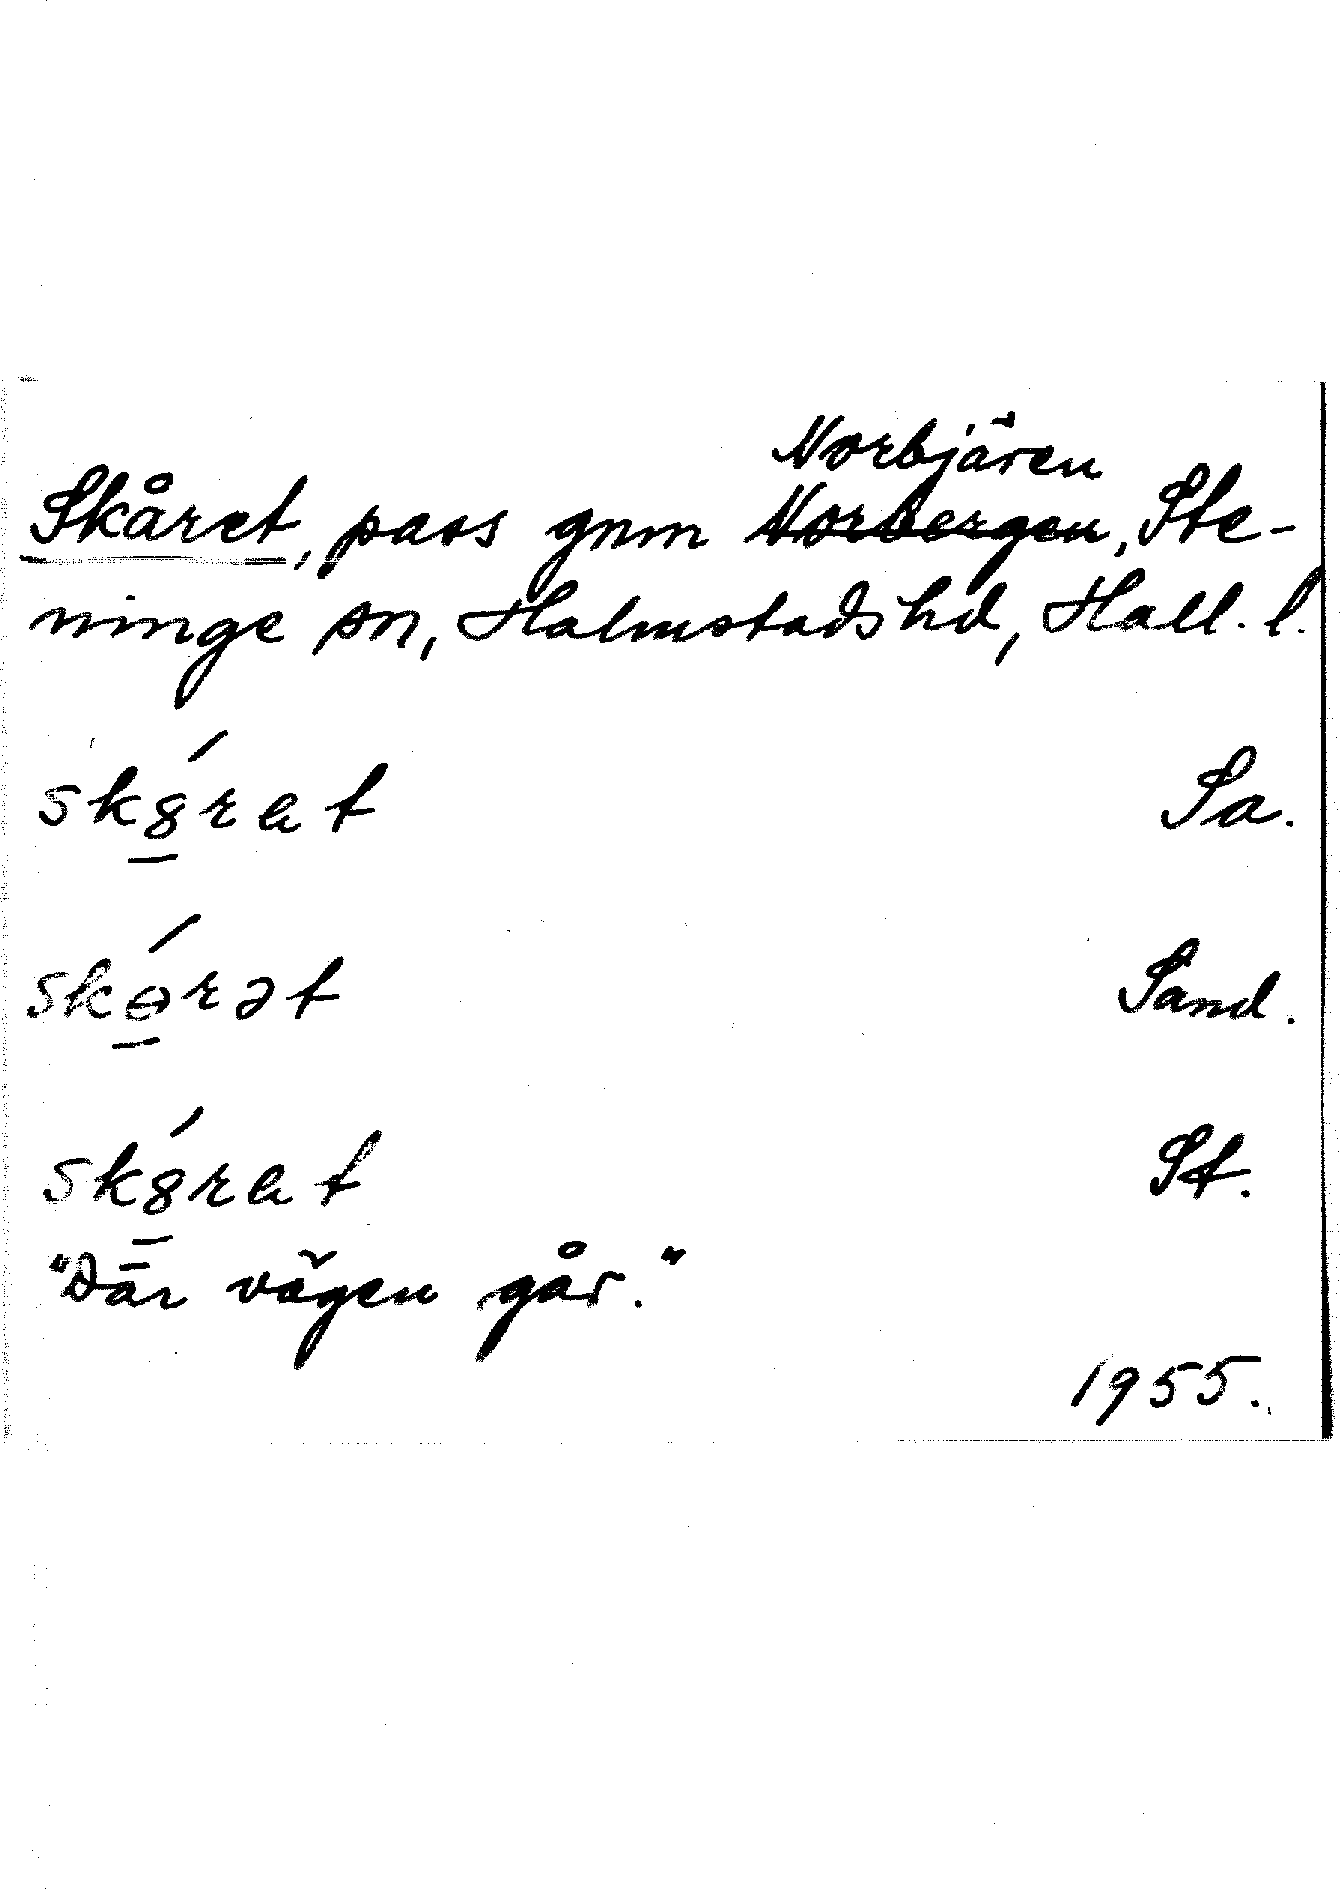 Norbjären
Skåret, pass gnm Norbergen, Ste-
ninge sn, Halmstads hd, Hall. l.
Sa.
Sand.
St.
"Där vägen går."
1955.